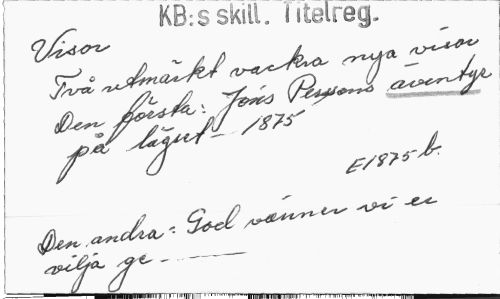 KB:s skill. Titelreg.
Visor
Två utmärkt vackra nya visor
Den första: Jöns Perssons äventyr
på lägret – 1875
E1875 b.
Den andra: God vänner vi er
vilja ge - ——